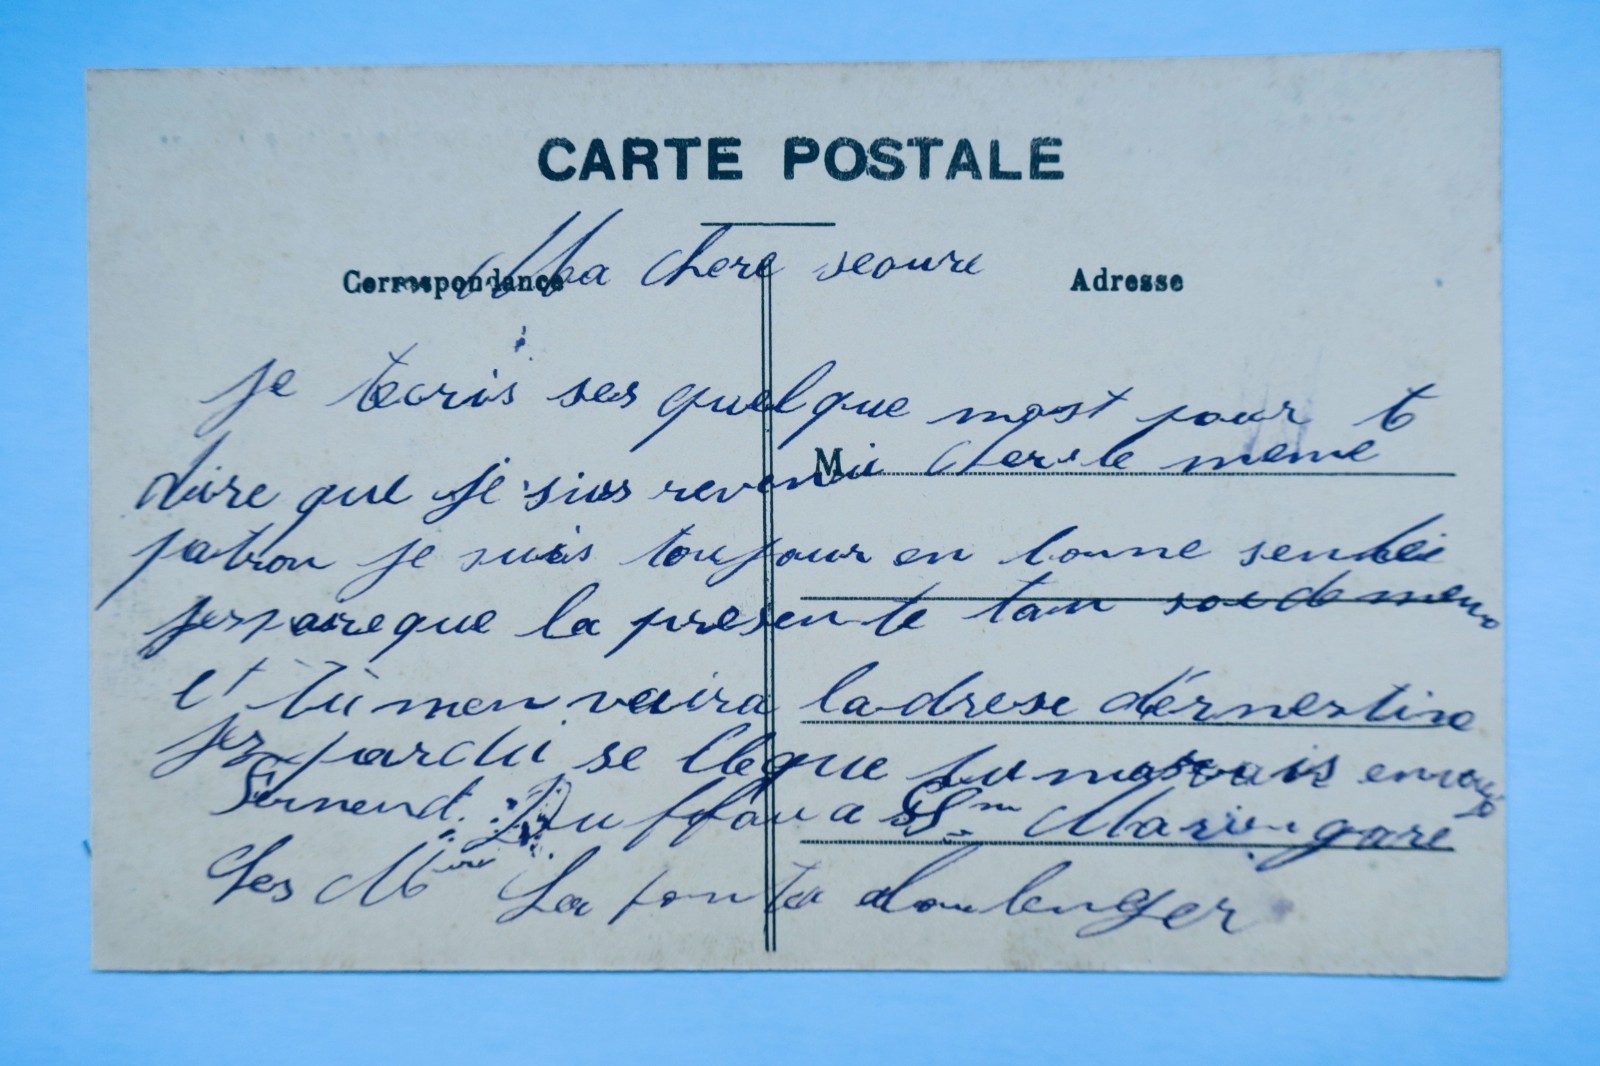 CARTE POSTALE
Correspondance
Adresse
Ma chere seoure
Je tecris ses quelque most pour te
dire que je suis revenu cher le meme
M
patron je suis toujour en bonne sentéi
jespaire que la presente tan soi de meme
et tu men vaira ladrese dérnestine
jer pardu se lleque tu mavais envoye
Fernend. Duffau a St Marien gare
Les M La ponta doulenger